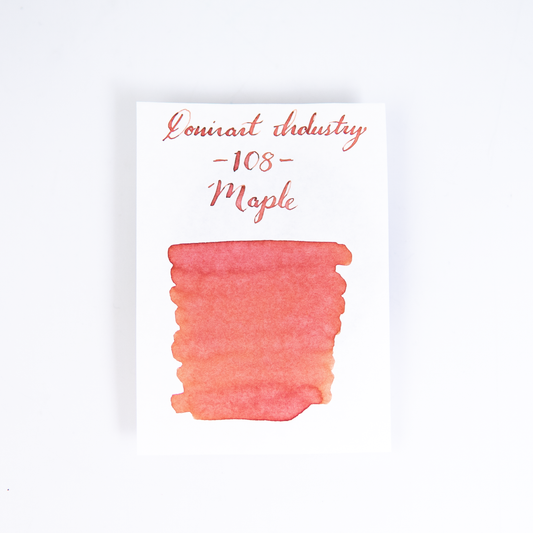 Dominant Industry
-108-
Maple